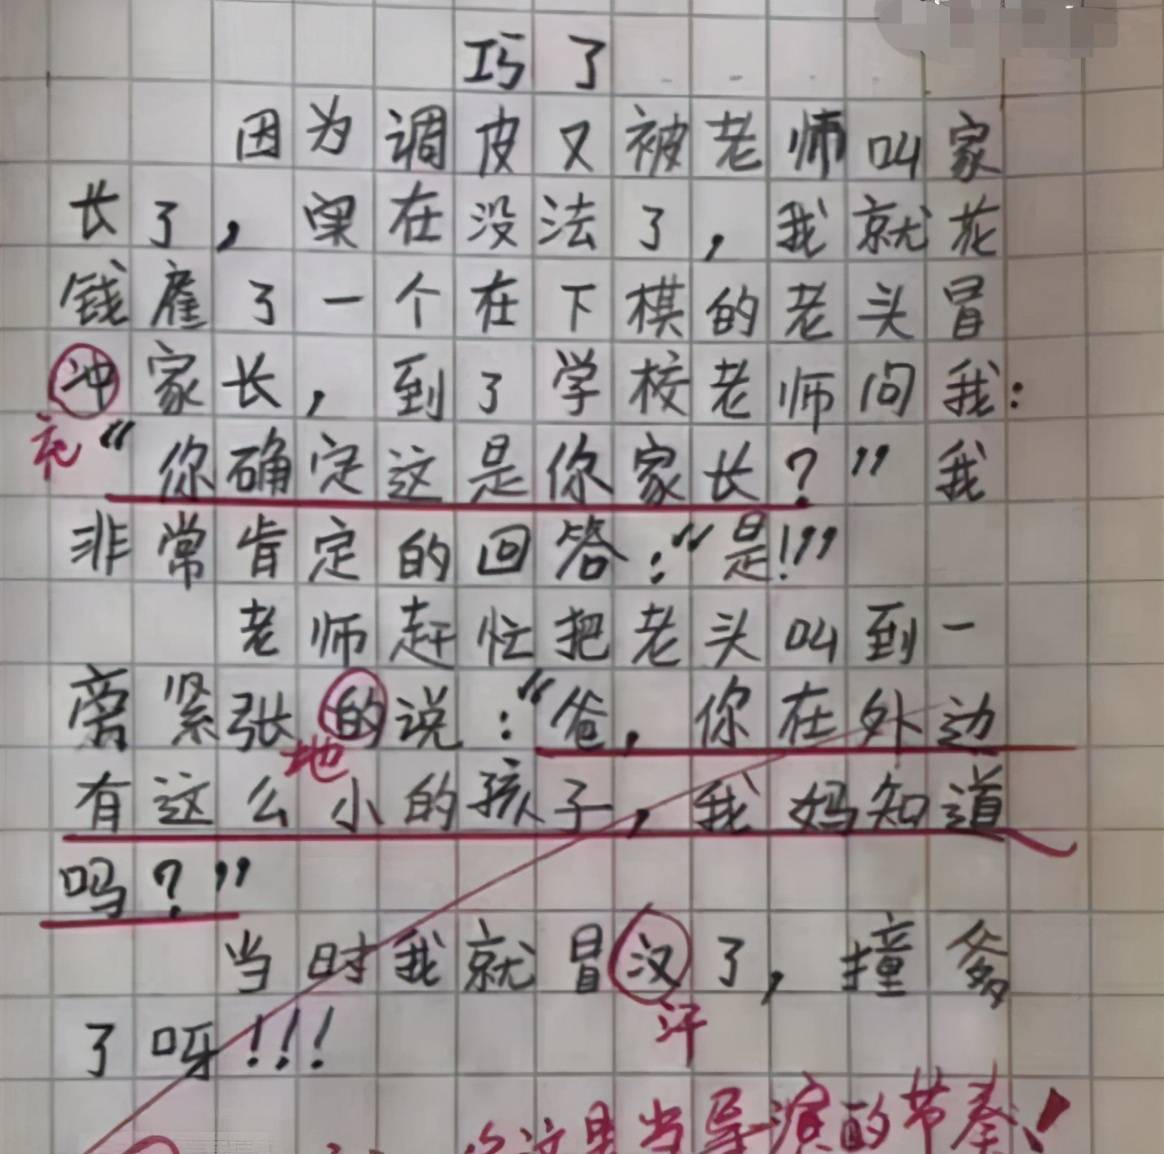 巧了
因为调皮又被老师叫家
长了，实在没法了，我就花
钱雇了一个在下棋的老头冒
冲家长，到了学校老师问我：
充
“你确定这是你家长？”我
非常肯定的回答：“是！”
老师赶忙把老头叫到一
旁紧张的说：“爸，你在外边
地
有这么小的孩子，我妈知道
吗？”
当时我就冒汉了，撞爹
汗
了呀！！！
你这是当导演的节奏！